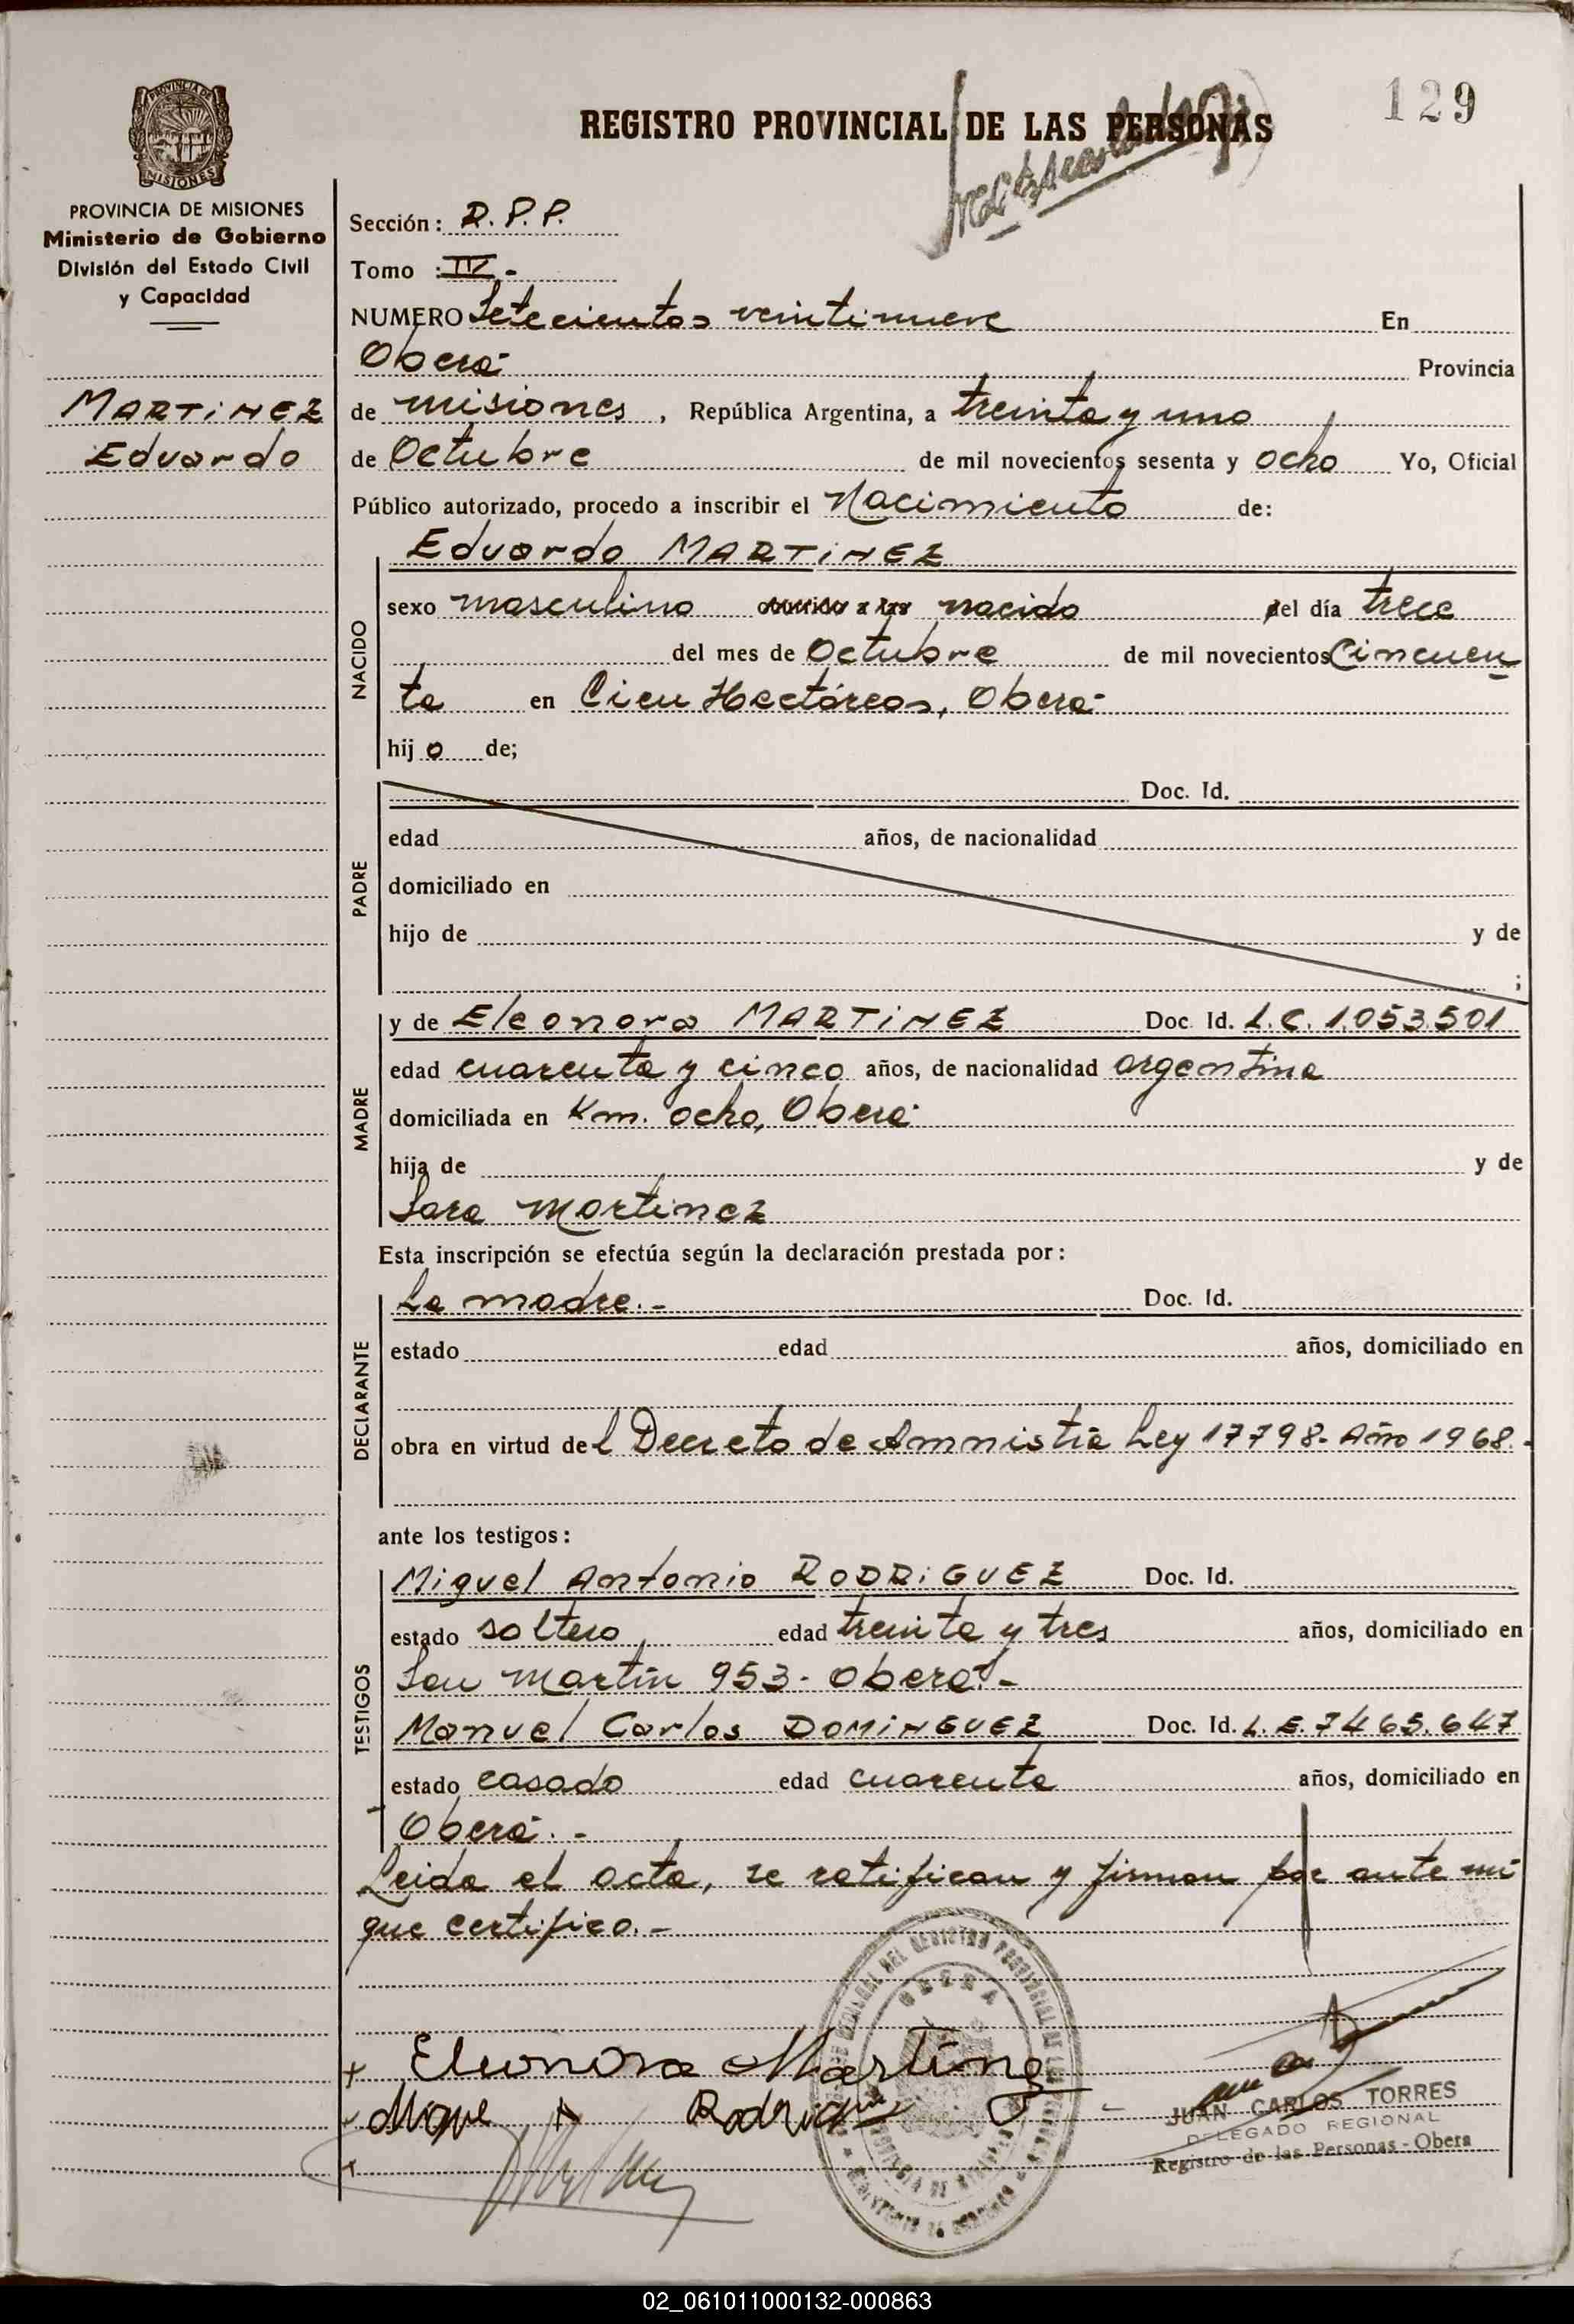 129
REGISTRO PROVINCIAL DE LAS PERSONAS
PROVINCIA DE
MISIONES
PROVINCIA DE MISIONES
Ministerio de Gobierno
División del Estado Civil
y Capacidad
MARTINEZ
Eduardo
Sección: R.P.P.
Tomo : IV.-
NUMERO Setecientos veintinueve En
Oberá Provincia
de misiones, República Argentina, a treinta y uno
de Octubre de mil novecientos sesenta y ocho Yo, Oficial
Público autorizado, procedo a inscribir el Nacimiento de:
Eduardo MARTINEZ
NACIDO
sexo masculino nacido del día trece
del mes de Octubre de mil novecientos Cincuen
ta en Cien Hectáreas, Oberá
hij o de;
PADRE
Doc. Id.
edad años, de nacionalidad
domiciliado en
hijo de y de
;
MADRE
y de Eleonora MARTINEZ Doc. Id. L.C. 1.053.501
edad cuarenta y cinco años, de nacionalidad argentina
domiciliada en Km. ocho, Oberá
hija de y de
Sara Martinez
Esta inscripción se efectúa según la declaración prestada por:
DECLARANTE
La madre.- Doc. Id.
estado edad años, domiciliado en
obra en virtud del Decreto de Amnistía Ley 17798- Año 1968.-
ante los testigos:
TESTIGOS
Miguel Antonio RODRIGUEZ Doc. Id.
estado soltero, edad treinta y tres años, domiciliado en
San Martín 953- Oberá.-
Manuel Carlos DOMINGUEZ Doc. Id. L.E. 7465.647
estado casado edad cuarenta años, domiciliado en
Oberá.-
Leida el acta, se ratifican y firman por ante mí
que certifico.-
Eleonora Martinez
Migue A Rodriguez
OBERA
JUAN CARLOS TORRES
DELEGADO REGIONAL
Registro de las Personas - Obera
02_061011000132-000863